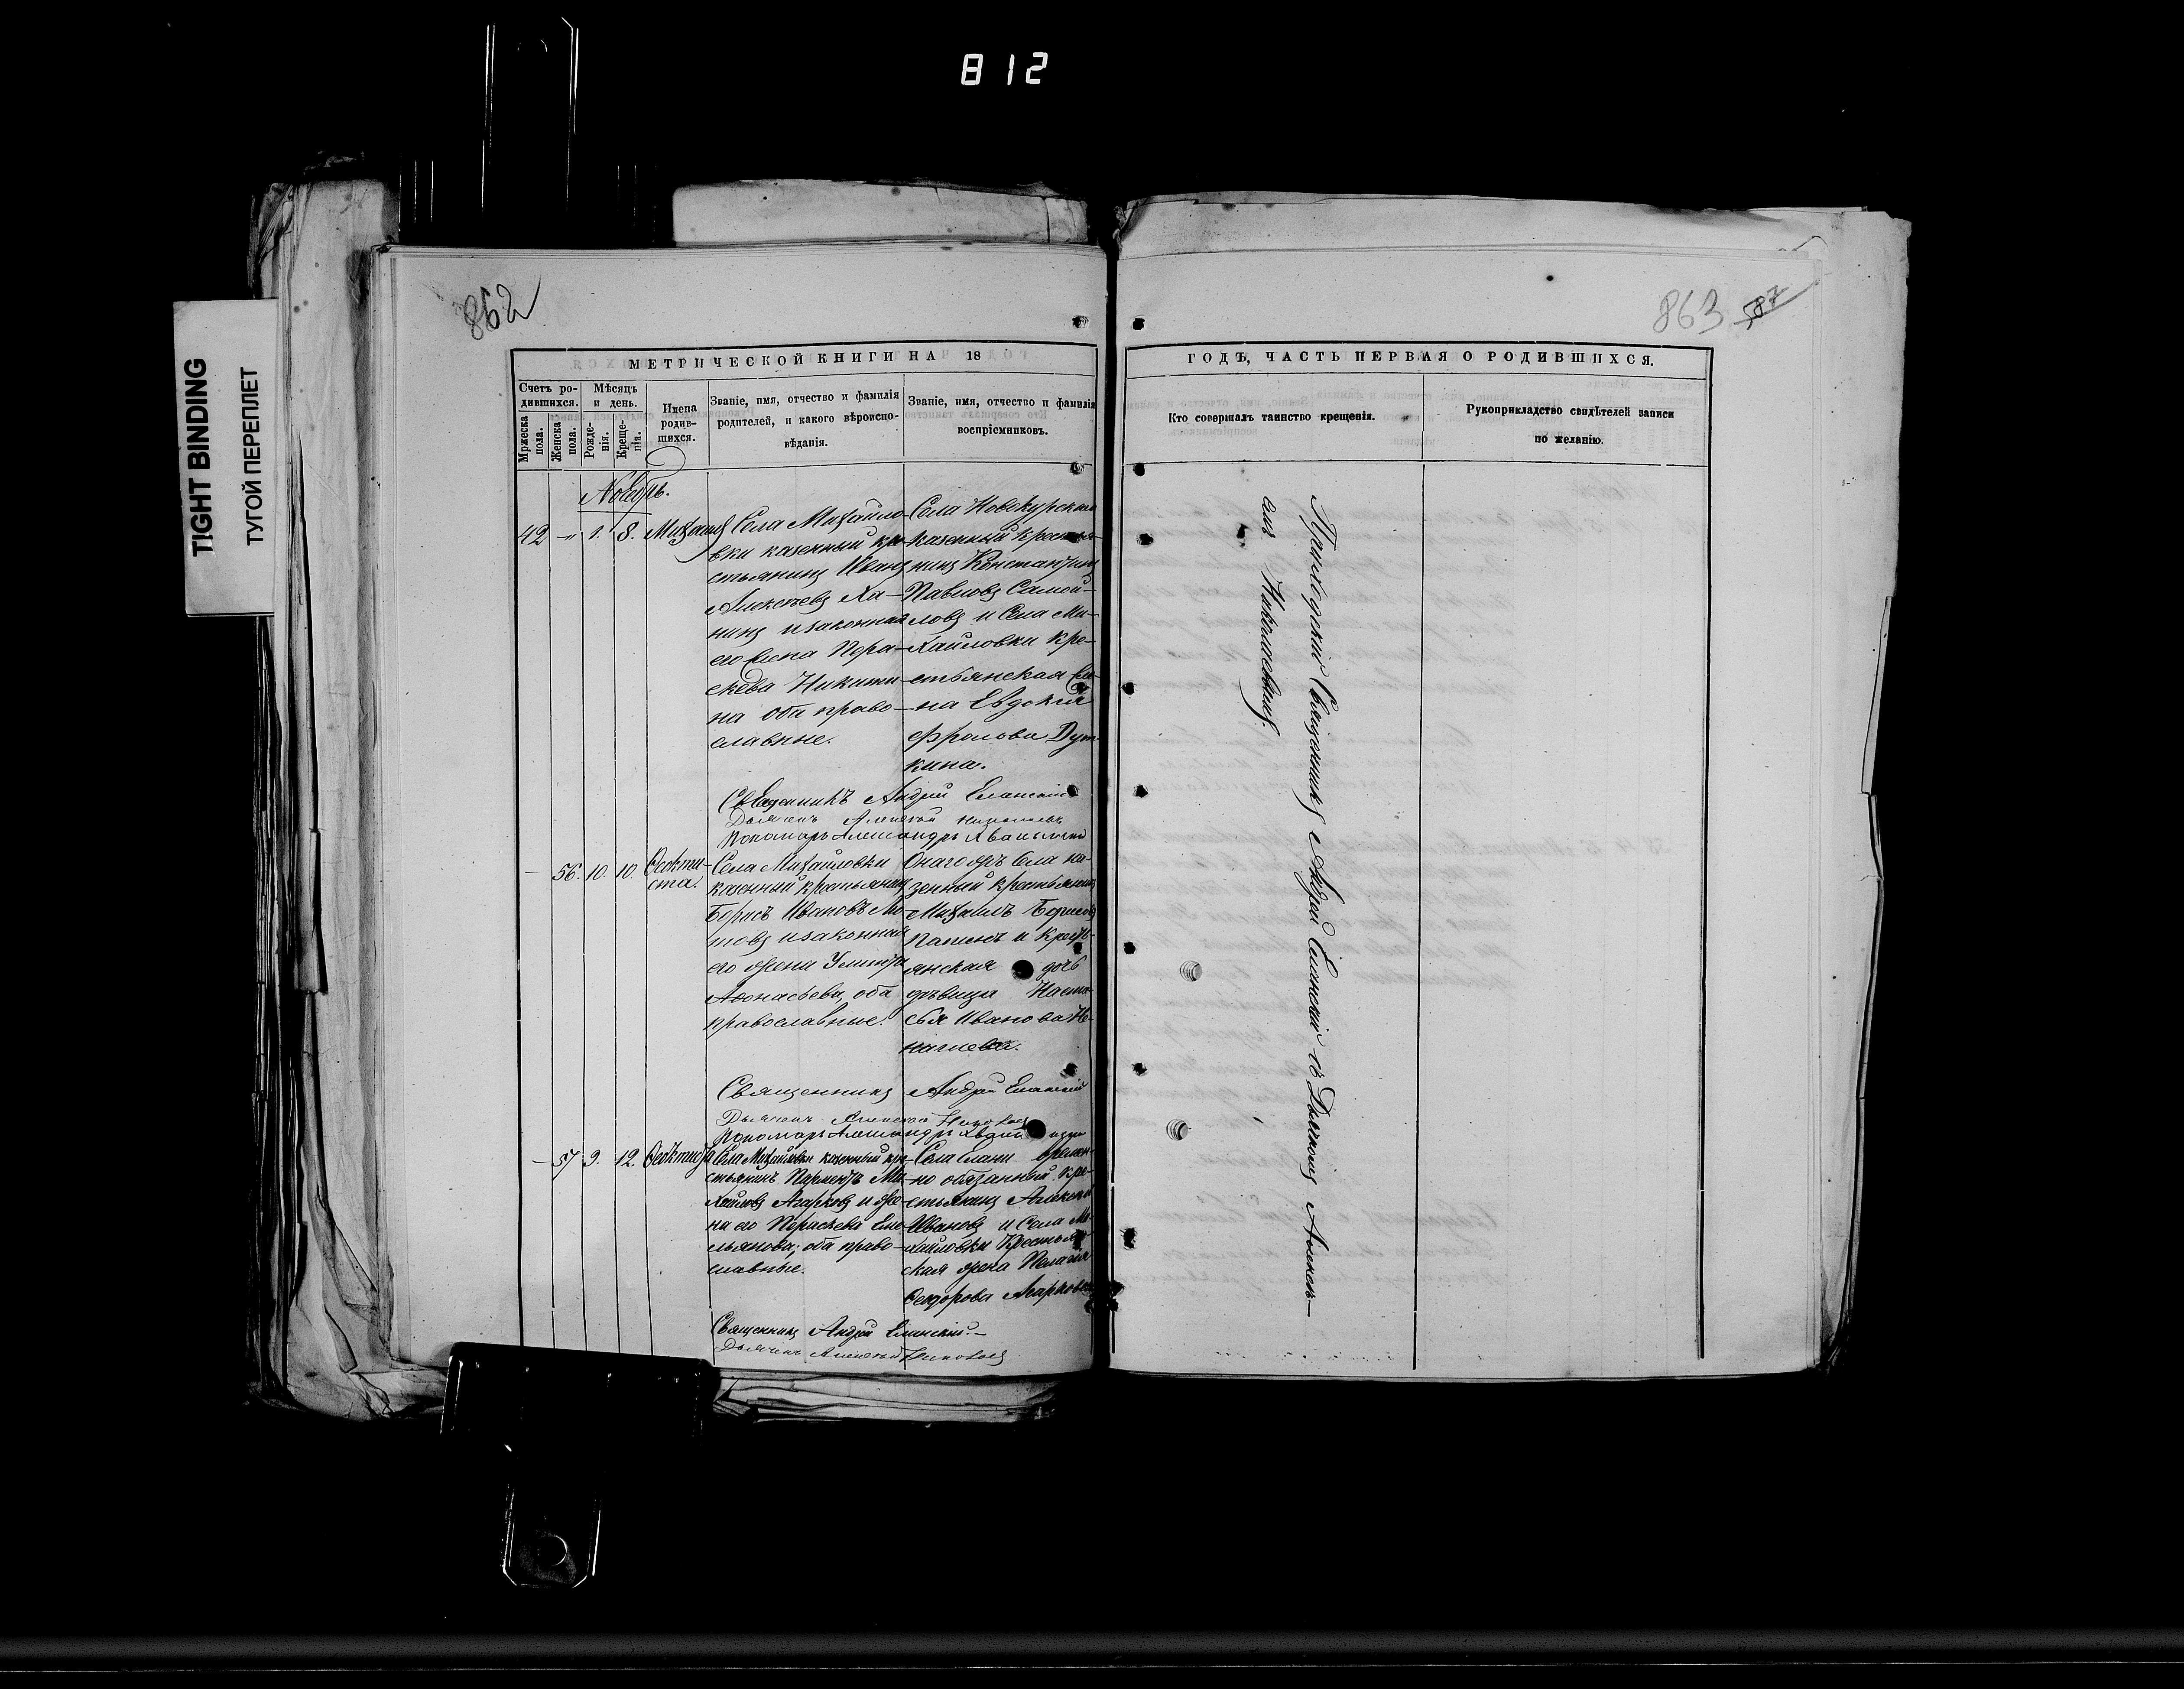 812
TIGHT BINDING
ТУГОЙ ПЕРЕПЛЕТ
862
МЕТРИЧЕСКОЙ КНИГИ НА 18
Счетъ родившихся.
Мужеска пола.
Женска пола.
Мѣсяцъ и день.
Рожденія.
Крещенія.
Имена родившихся.
Званіе, имя, отчество и фамилія
родителей, и какого вѣроиспо-
вѣданія.
Званіе, имя, отчество и фамилія
воспріемниковъ.
Ноябрь.
42 " 1. 8. Михаилъ
Села Михайло-
вки казенный кре-
стьянинъ Иванъ
Алексѣевъ Ха-
нинъ и законная
его жена Пара-
скева Никити-
на оба право-
славные.
Села Новокурскаго
казенный крестья-
нинъ Константинъ
Павловъ Самой-
ловъ и Села Ми-
хайловки кре-
стьянская же-
на Евдокия
Фролова Дут-
кина.
Священникъ Андрей Еланский
Дьячекъ Алексѣй Николаевъ
Пономарь Александръ
56. 10. 10. Феокти-
ста.
Села Михайловки
казенный крестьянинъ
Борисъ Ивановъ
и законная
его жена Улита
Афонасьева, оба
православные.
Онаго жъ Села ка-
зенный крестьянинъ
Михаилъ Борисовъ
и крестъ-
янская дочь
дѣвица Наста-
сья Иванова
Священникъ Андрей Еланский
Дьячекъ Алексѣй
Пономарь Александръ
57 9. 12. Феоктиста
Села Михайловки казенный кре-
стьянинъ Парментъ Ми-
хайловъ Агарковъ и же-
на его Параскева Еме-
льянова; оба право-
славные.
Села Елани времен-
но обязанный кре-
стьянинъ Алексей
Ивановъ и Села Ми-
хайловки Крестьян-
ская жена Пелагия
Феодорова Агаркова
Священникъ Андрей Еланский.
Дьячекъ Алексѣй
863 587
ГОДЪ, ЧАСТЬ ПЕРВАЯ О РОДИВШИХСЯ.
Кто совершалъ таинство крещенія.
Рукоприкладство свидѣтелей записи
по желанію.
Приходский Священникъ Андрей Еланский съ Дьячкомъ Алексѣ-
емъ Николаевымъ.